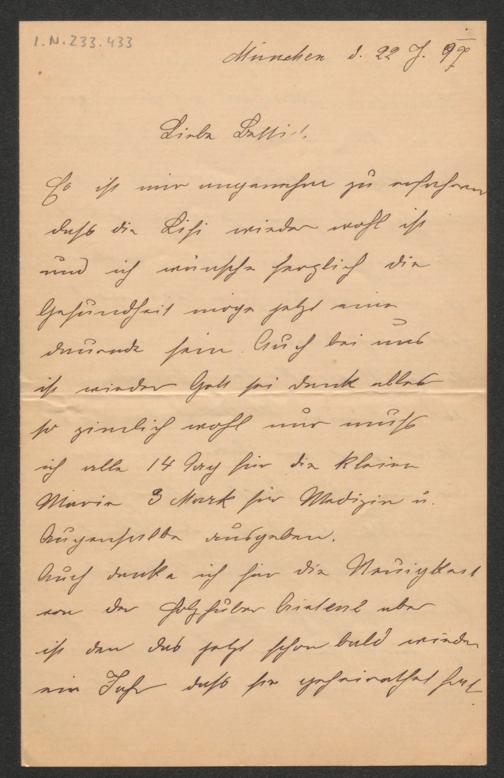 I.N.233.433
München d. 22 J. 97
Liebe Betti!
Es ist mir angenehm zu erfahren
daß die Lisi wieder wohl ist
und ich wünsche herzlich die
Gesundheit möge jetzt eine
dauernde sein. Auch bei uns
ist wieder Gott sei dank alles
so zimlich wohl nur muß
ich alle 14 Tag für die kleine
Marie 3 Mark für Medizin u.
Augensalbe ausgeben.
Auch danke ich für die Neuigkeit
von der Holzhuber aber
ist den das jetzt schon bald wieder
ein Jahr daß sie geheirathet hat